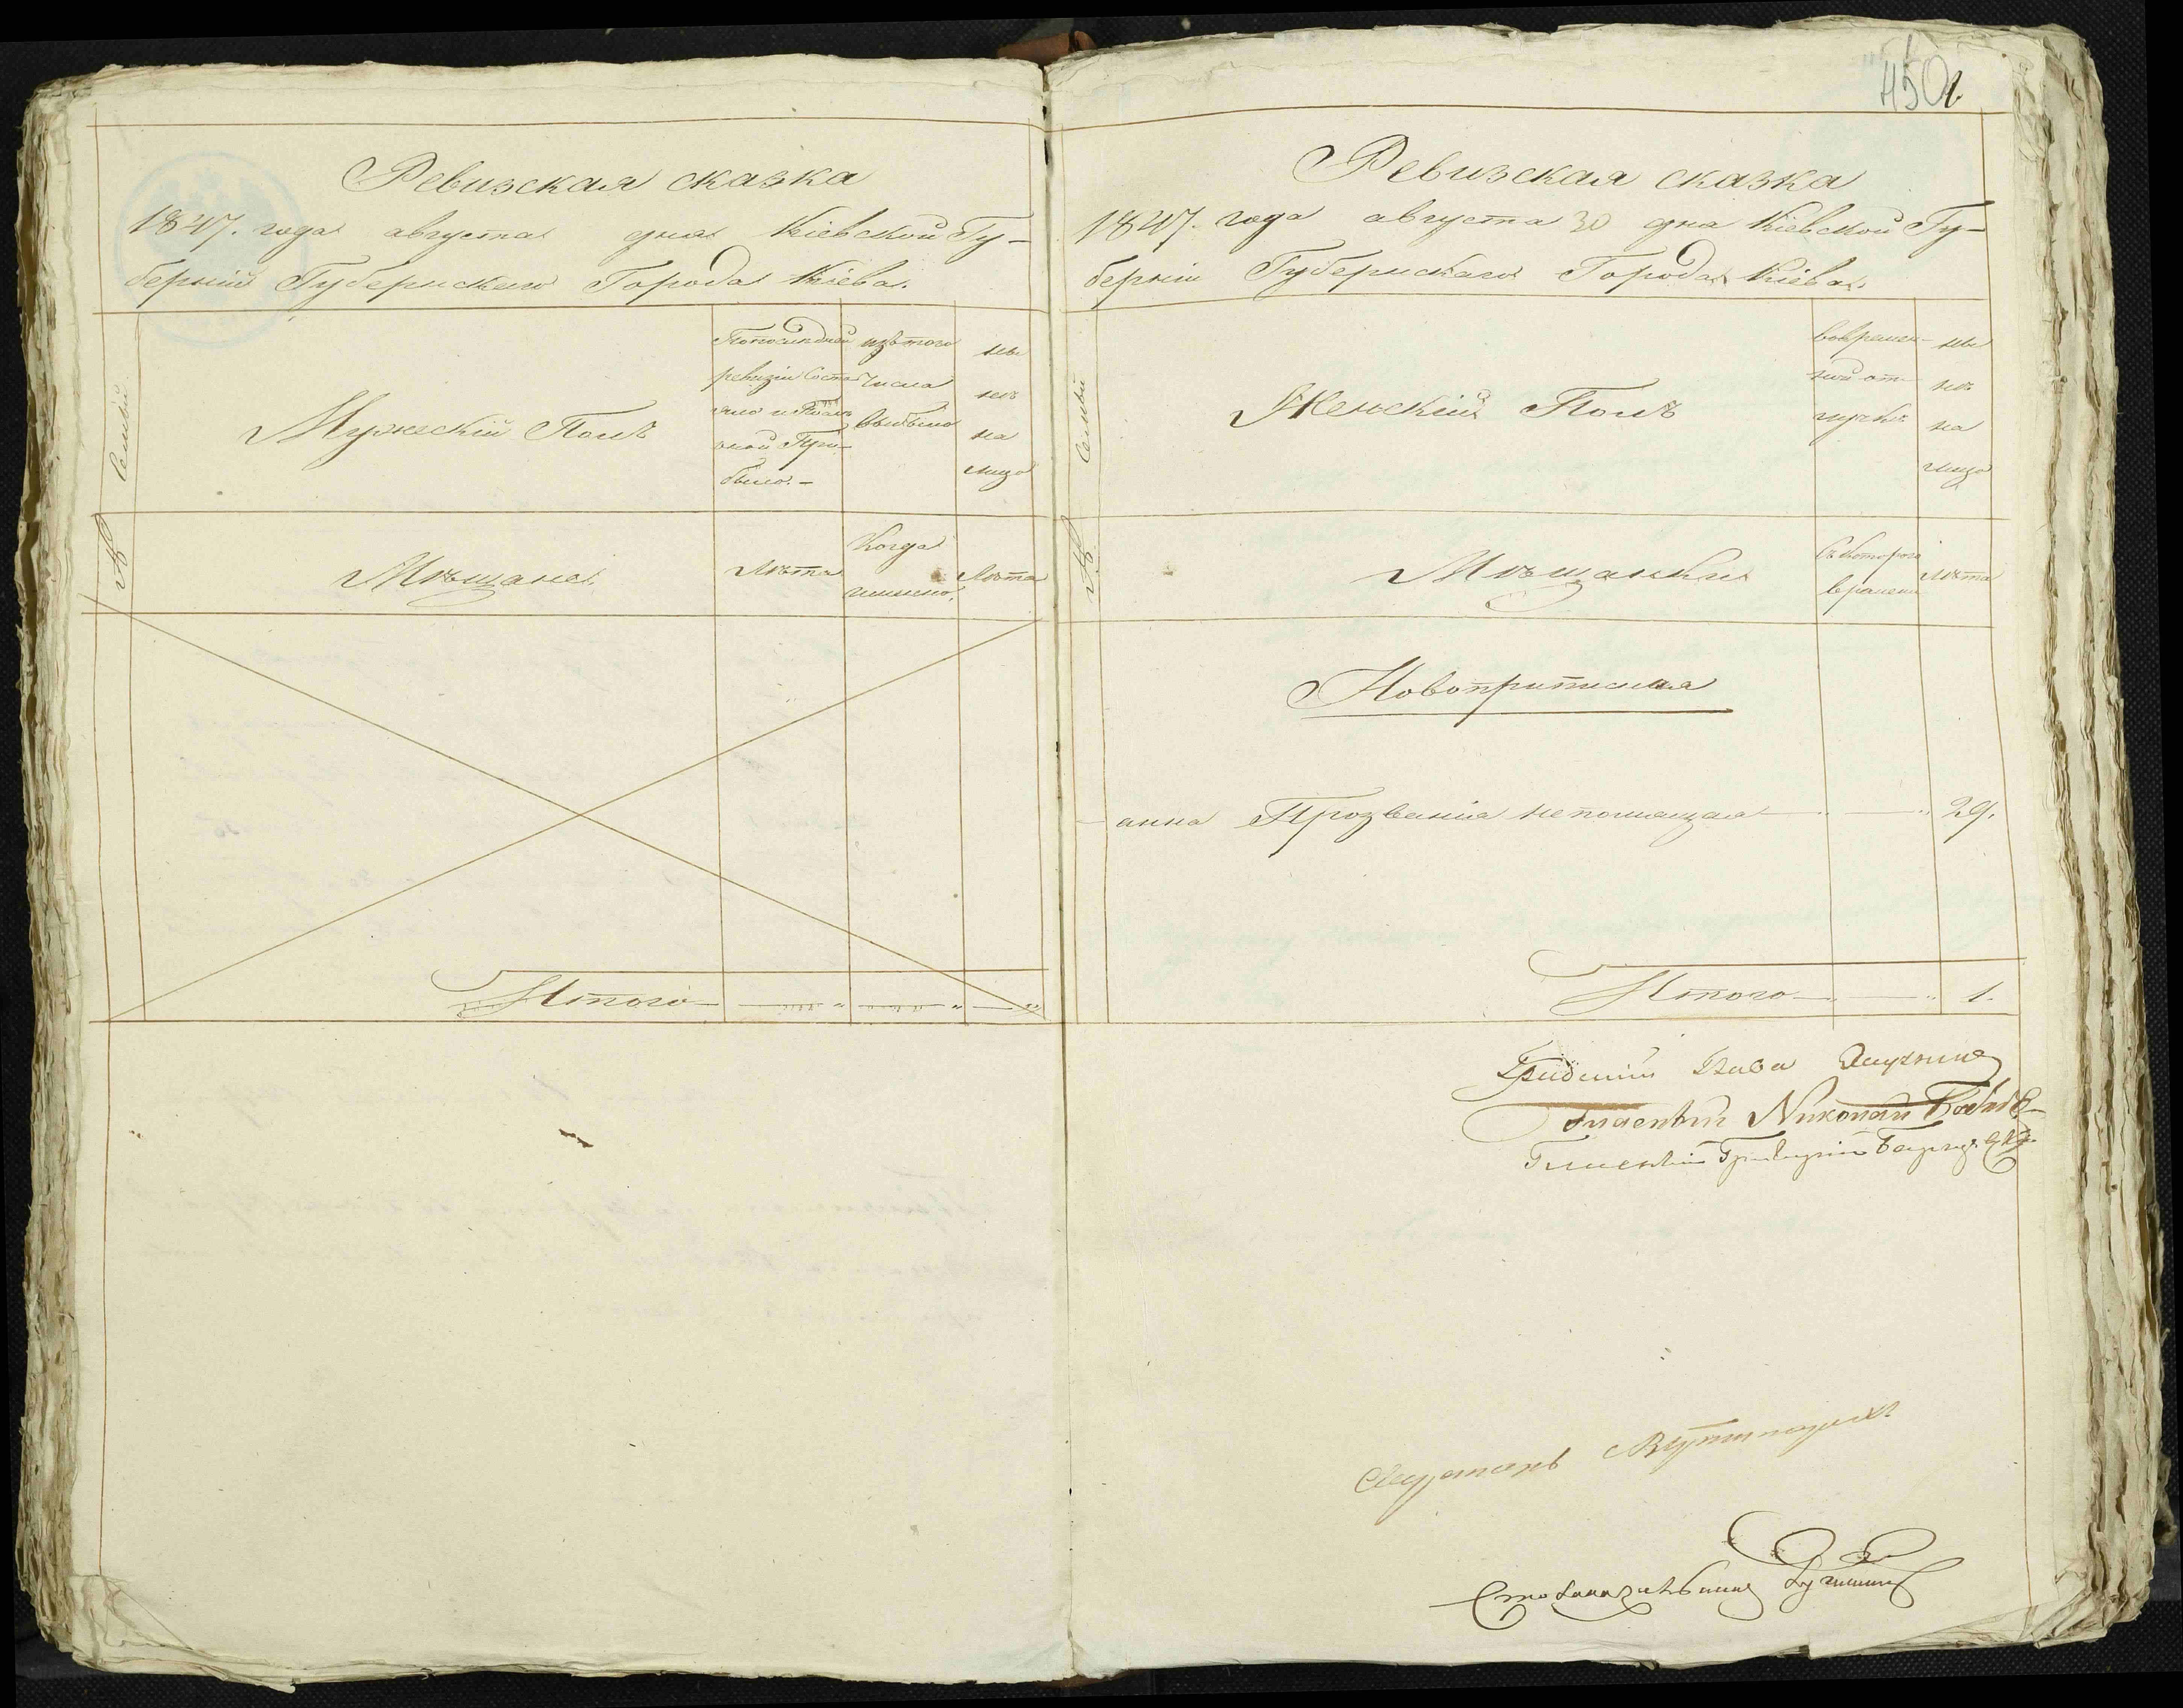 450
1.
Ревизская сказка
1847. года августа дня Кіевской Гу-
берніи Губернскаго Города Кіева.
№ Семьи
Мужескій Полъ
По последней
ревизіи состо-
яло и после
оной При-
было. -
изъ того
числа
выбыло
ны
не
на
лицо
Мѣщане
Лѣта
Когда
именно.
Лѣта
Итого
Ревизская сказка
1847. года августа 30 дня Кіевской Гу-
берніи Губернскаго Города Кіева.
№ Семьи
Женскій Полъ
во времен-
ной от-
лучке
ны
не
на
лицо
Мѣщанки
Съ котораго
времени
Лѣта
Новоприписная
анна Прозванія непомнящая 29.
Итого 1.
Гласный Николай
Гласный Григорий
Секретарь
Столоначальникъ